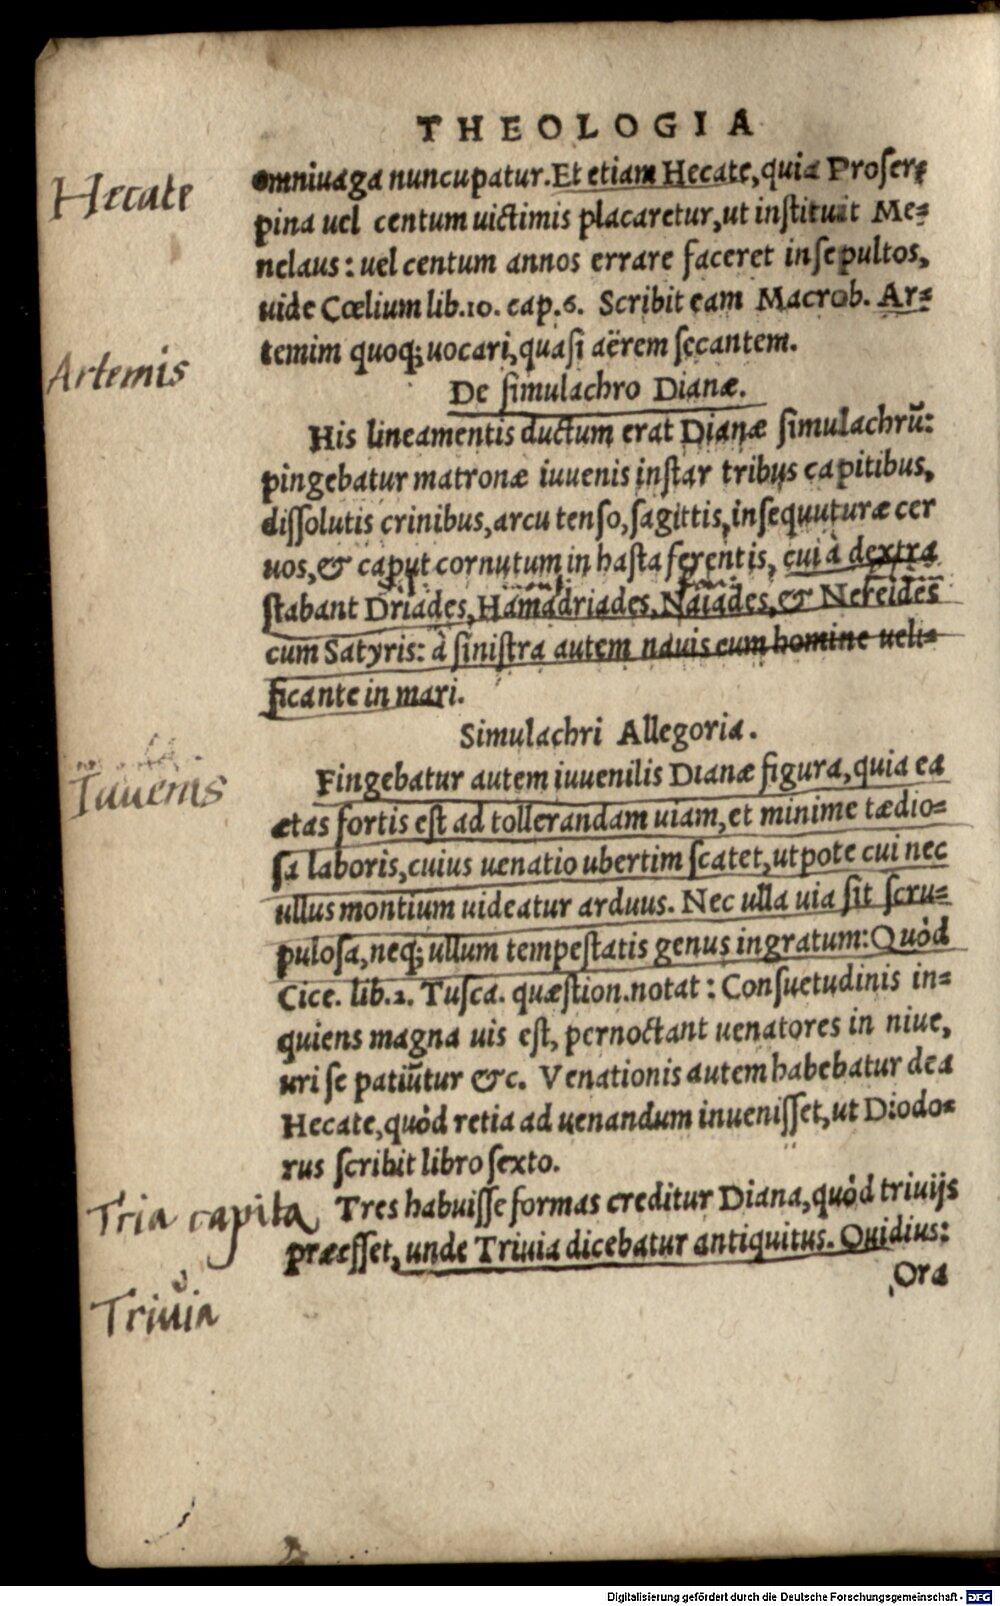 THEOLOGIA
omniuaga nuncupatur. Et etiam Hecate, quia Proser⸗
Hecate
pina uel centum uictimis placaretur, ut instituit Me⸗
nelaus: uel centum annos errare faceret insepultos,
uide Cœlium lib.10. cap.6. Scribit eam Macrob. Ar⸗
temim quoq; uocari, quasi aërem secantem.
Artemis
De simulachro Dianæ.
His lineamentis ductum erat Dianæ simulachrū:
pingebatur matronæ iuuenis instar tribus capitibus,
dissolutis crinibus, arcu tenso, sagittis, insequuturæ cer
uos, & caput cornutum in hasta ferentis, cui à dextra
stabant Driades, Hamadriades, Naiades, & Nereides
cum Satyris: à sinistra autem nauis cum homine ueli⸗
ficante in mari.
Simulachri Allegoria.
Fingebatur autem iuuenilis Dianæ figura, quia ea
Iuuenis
ætas fortis est ad tollerandam uiam, et minime tædio⸗
sa laboris, cuius uenatio ubertim scatet, utpote cui nec
ullus montium uideatur arduus. Nec ulla uia sit scru⸗
pulosa, neq; ullum tempestatis genus ingratum: Quòd
Cice. lib.2. Tusca. quæstion. notat: Consuetudinis in⸗
quiens magna uis est, pernoctant uenatores in niue,
uri se patiūtur &c. Venationis autem habebatur dea
Hecate, quòd retia ad uenandum inuenisset, ut Diodo⸗
rus scribit libro sexto.
Tria capita
Tres habuisse formas creditur Diana, quòd triuijs
præesset, unde Triuia dicebatur antiquitus. Ouidius:
Ora
Triuia
Digitalisierung gefördert durch die Deutsche Forschungsgemeinschaft - DFG